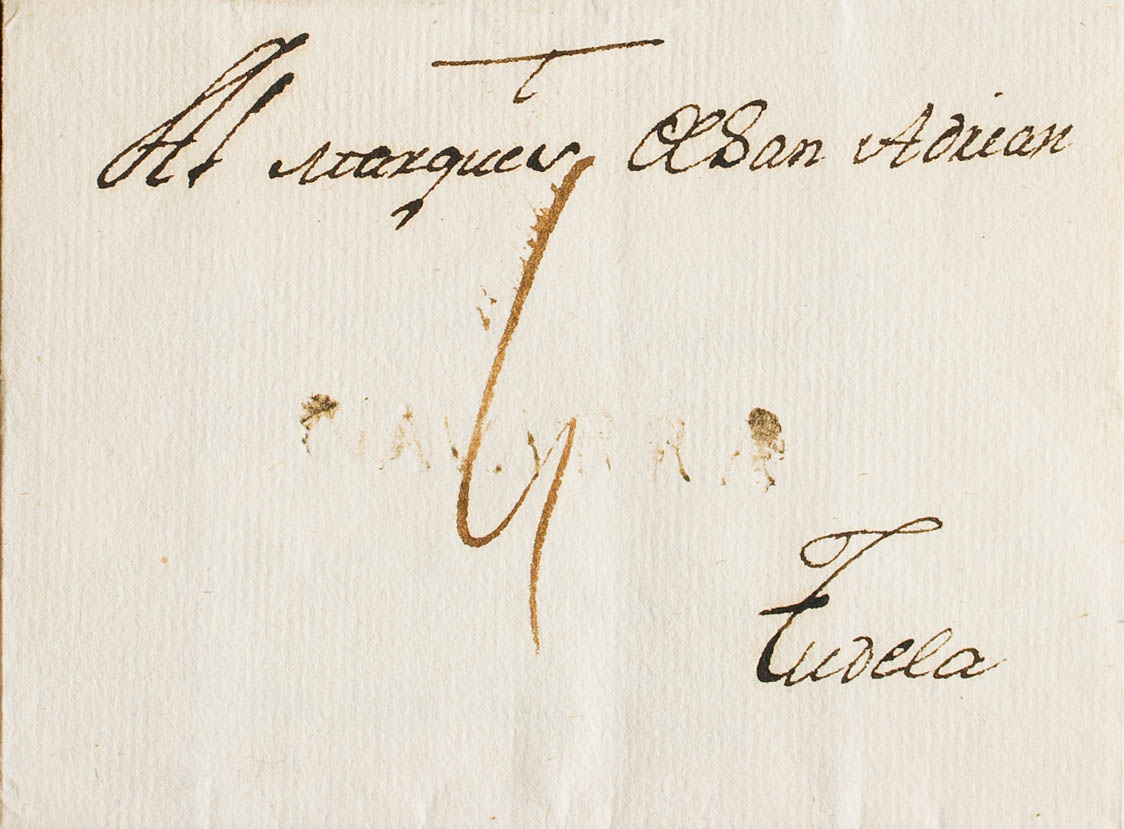 Al Marques de San Adrian
4
NAVARRA
Tudela